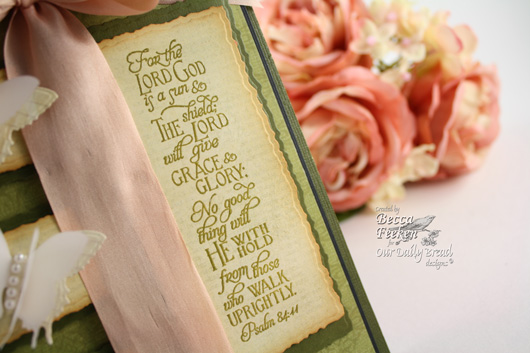 For the
LORD GOD
is a sun &
shield:
THE LORD
will give
GRACE &
GLORY;
No good
thing will
HE WITH
HOLD
from those
who WALK
UPRIGHTLY.
Psalm 84:11
Created by
Becca
Feeken
for
Our Daily Bread
designs